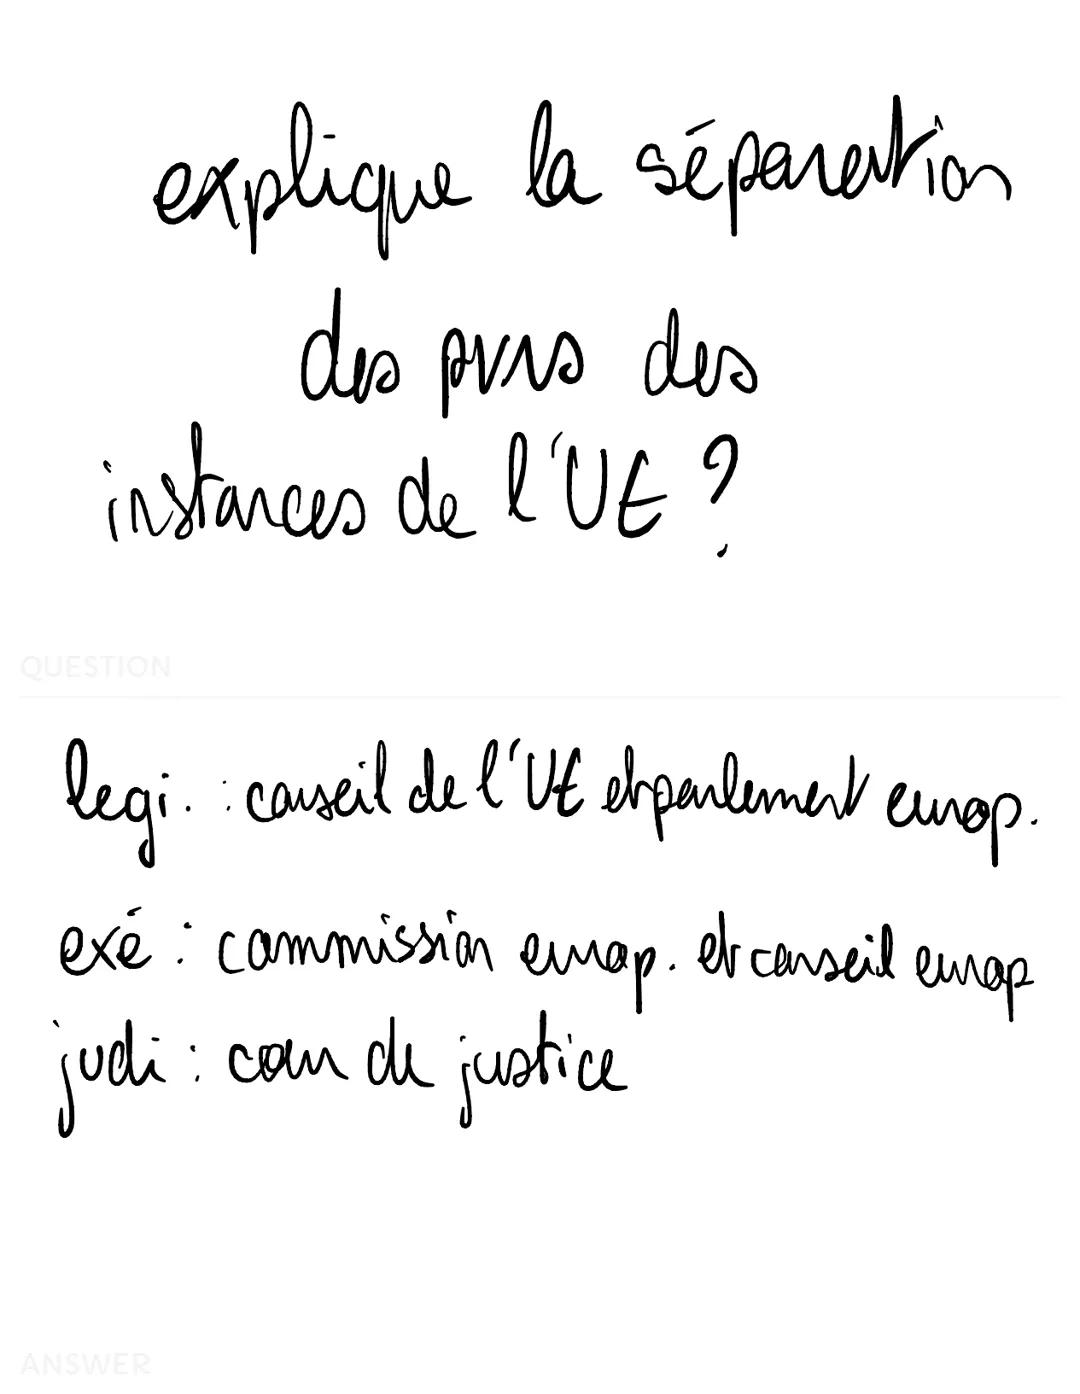 explique la séparation
des pvrs des
instances de l'UE ?
QUESTION
legi. : conseil de l'UE et parlement europ.
exé : commission europ. et conseil europ
judi : cour de justice
ANSWER